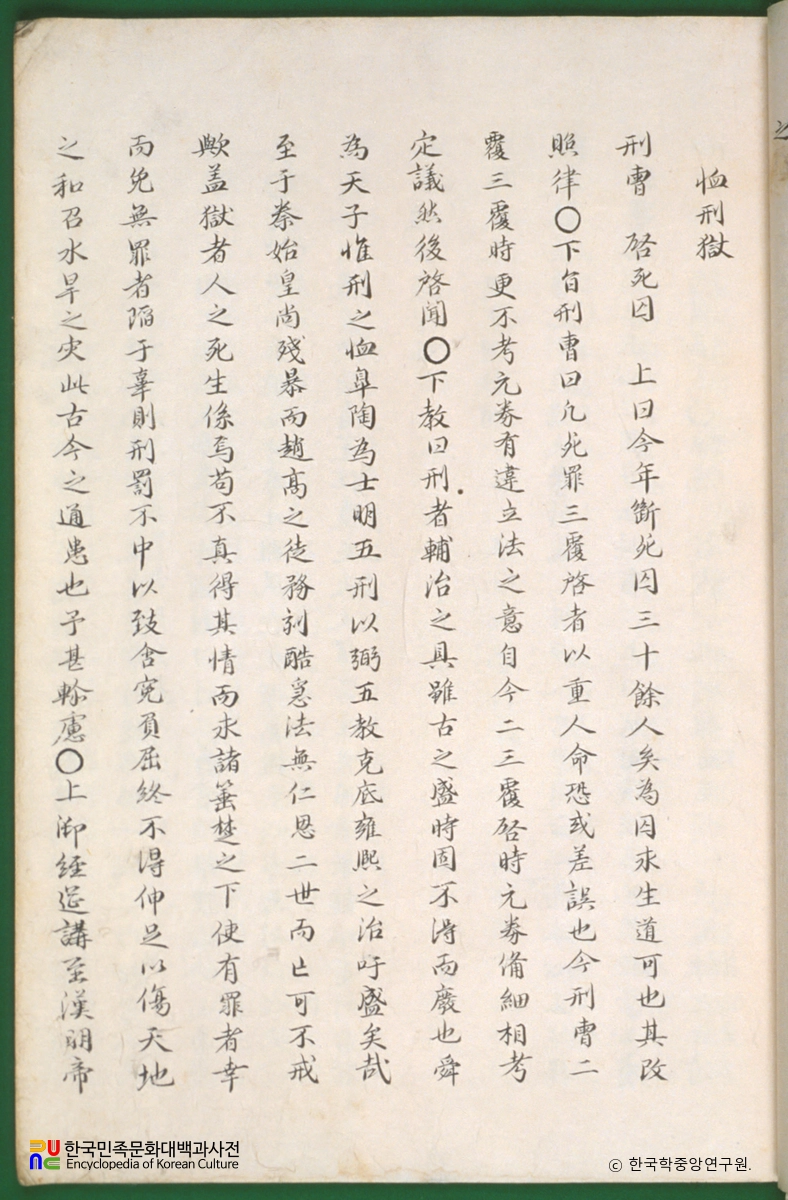 恤刑獄
刑曹 啓死囚 上曰今年斷死囚三十餘人矣為囚求生道可也其改
照律○下旨刑曹曰凡死罪三覆啓者以重人命恐或差誤也今刑曹二
覆三覆時更不考元券有違立法之意自今二三覆啓時元券備細相考
定議然後啓聞○下教曰刑者輔治之具雖古之盛時固不得而廢也舜
為天子惟刑之恤皐陶為士明五刑以弼五教克底雍熙之治吁盛矣哉
至于秦始皇尚殘暴而趙高之徒務刻酷為法無仁恩二世而亡可不戒
歟盖獄者人之死生係焉苟不真得其情而求諸箠楚之下使有罪者幸
而免無罪者陷于辜則刑罰不中以致含寃負屈終不得伸足以傷天地
之和召水旱之灾此古今之通患也予甚軫慮○上御經筵講至漢明帝
한국민족문화대백과사전
Encyclopedia of Korean Culture
ⓒ 한국학중앙연구원.